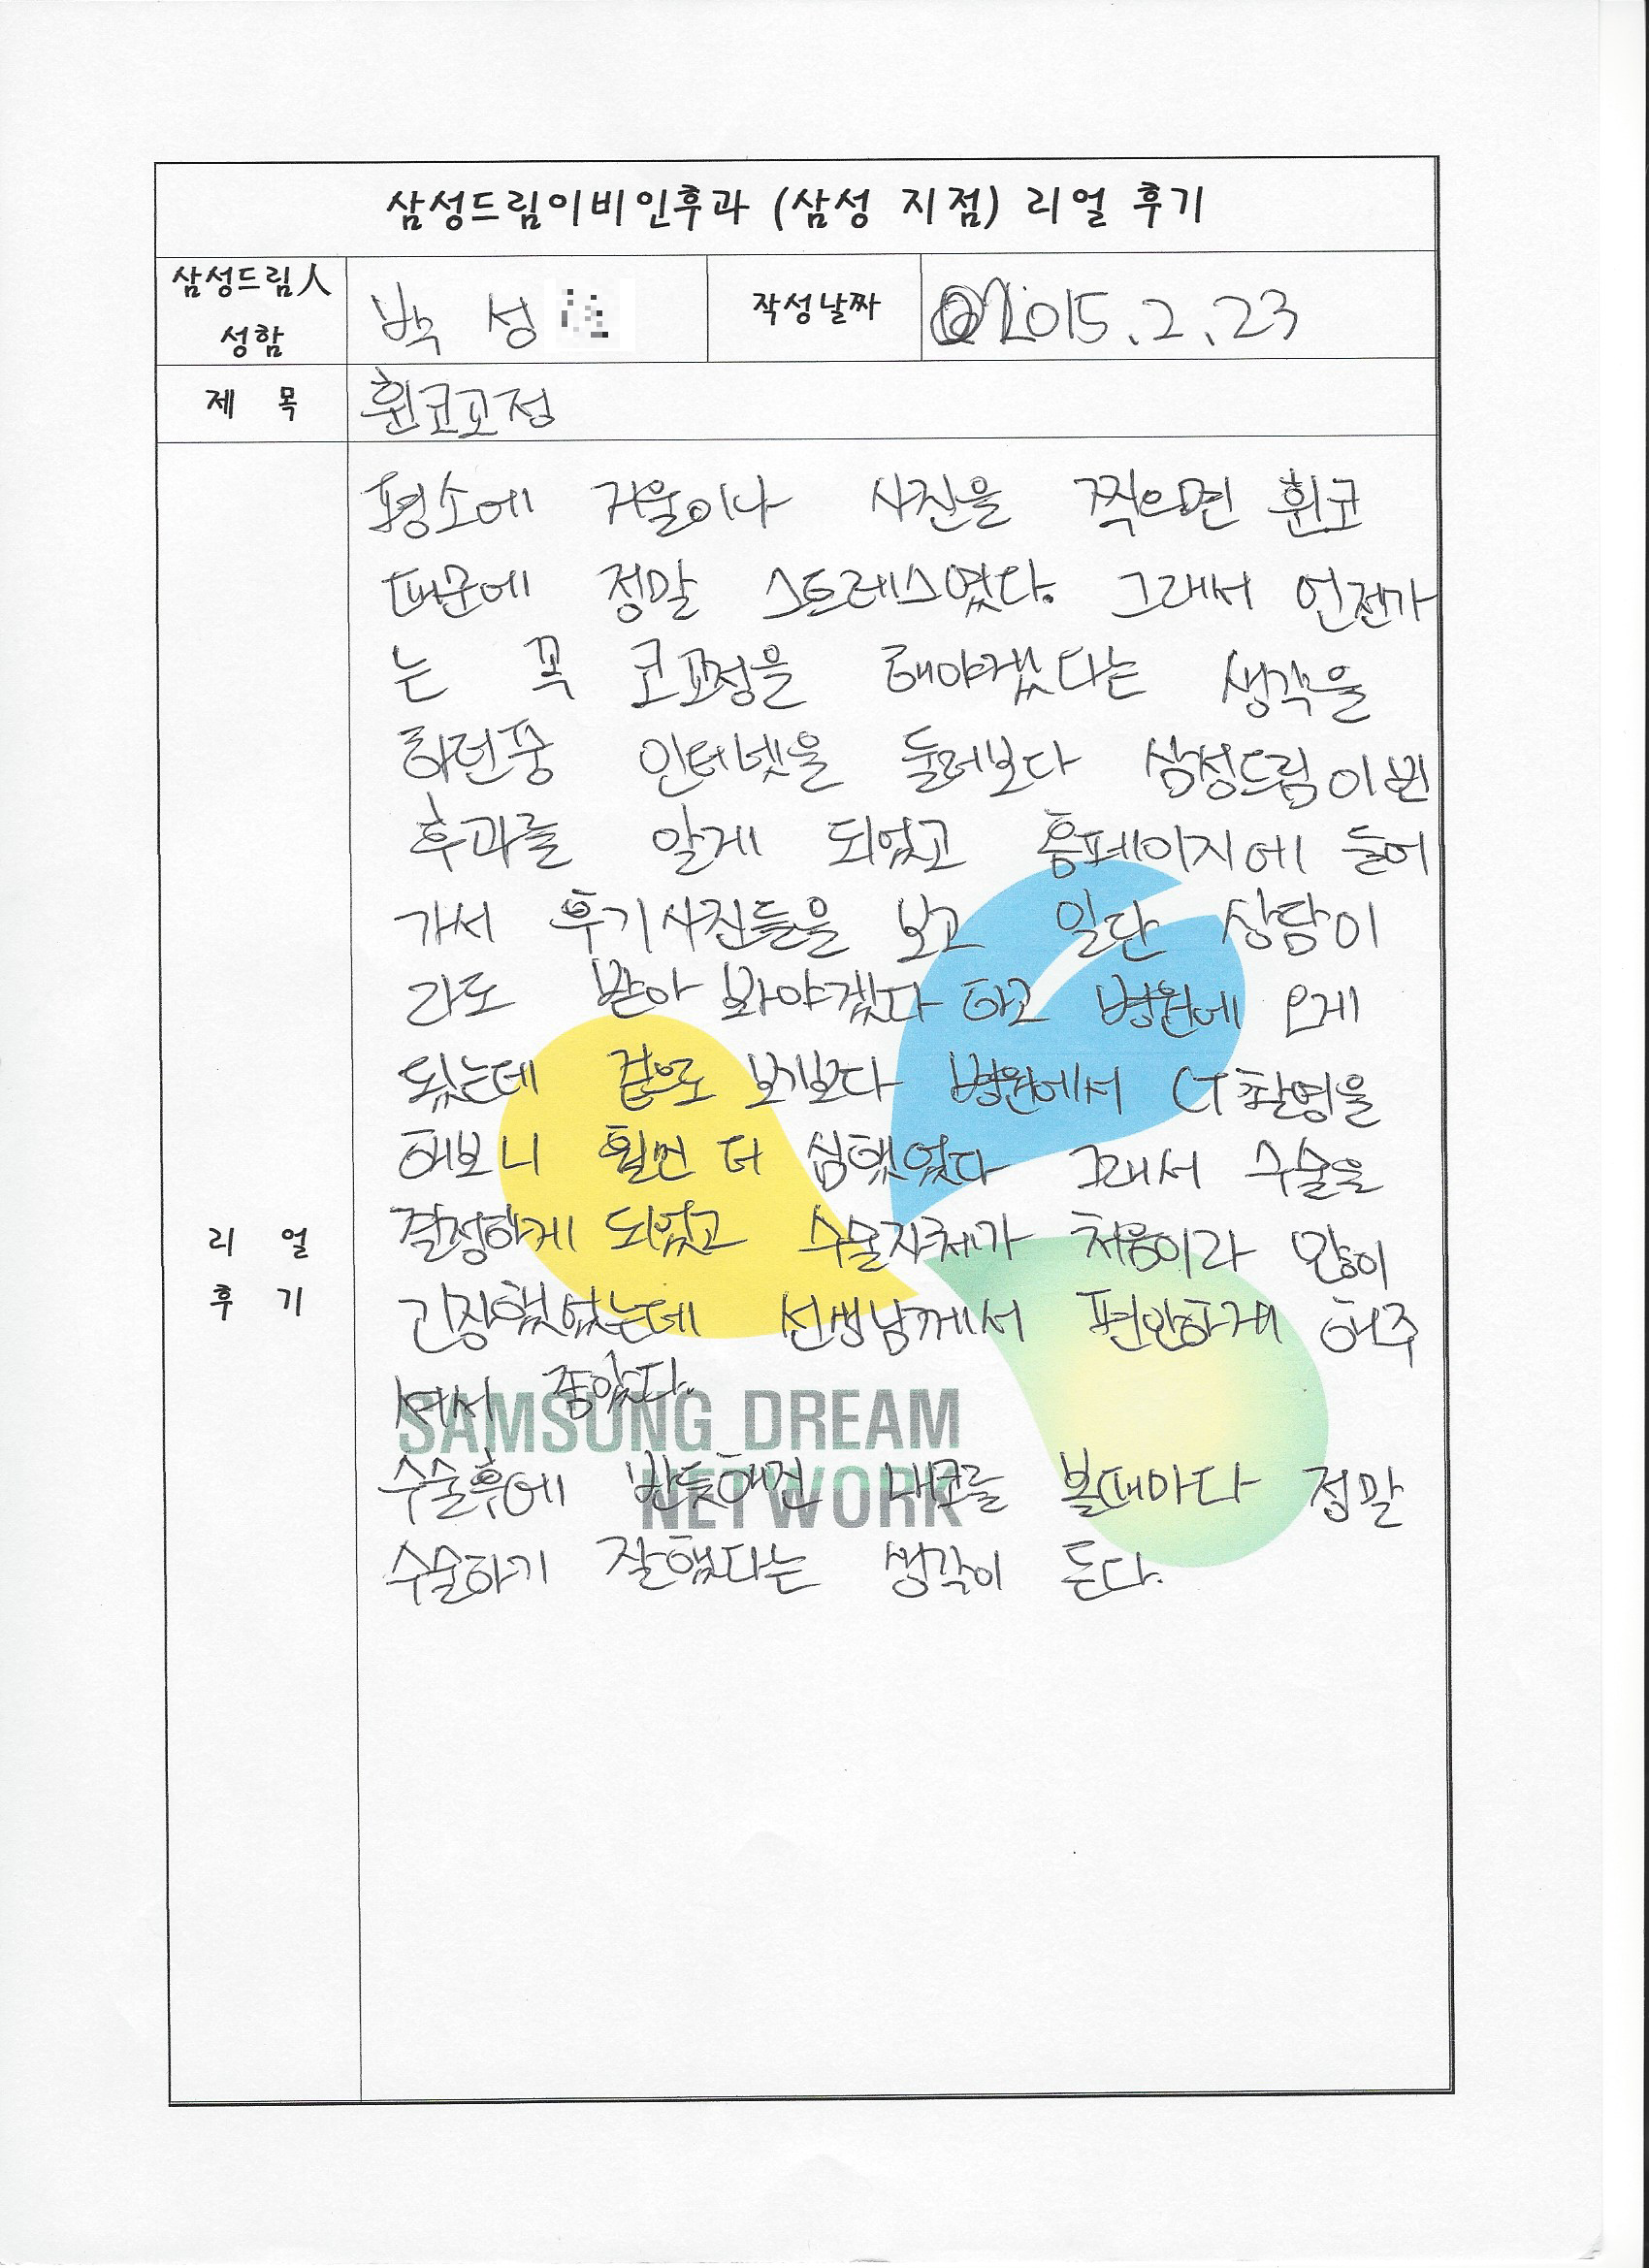 삼성드림이비인후과 (삼성 지점) 리얼 후기
삼성드림人
성함
박 성
작성날짜
2015.2.23
제 목
휜코교정
평소에 거울이나 사진을 찍으면 휜코
때문에 정말 스트레스였다. 그래서 언젠가
는 꼭 코교정을 해야겠다는 생각을
하던중 인터넷을 둘러보다 삼성드림이빈
후과를 알게 되었고 홈페이지에 들어
가서 후기사진들을 보고 일단 상담이
라도 받아 봐야겠다 하고 병원에 오게
됬는데 겉으로 보기보다 병원에서 CT촬영을
해보니 훨씬 더 심했었다 그래서 수술을
결정하게 되었고 수술자체가 처음이라 많이
긴장했었는데 선생님께서 편안하게 해주
셔서 좋았다.
수술후에 반듯해진 내코를 볼때마다 정말
수술하기 잘했다는 생각이 든다.
리 얼
후 기
SAMSUNG DREAM
NETWORK